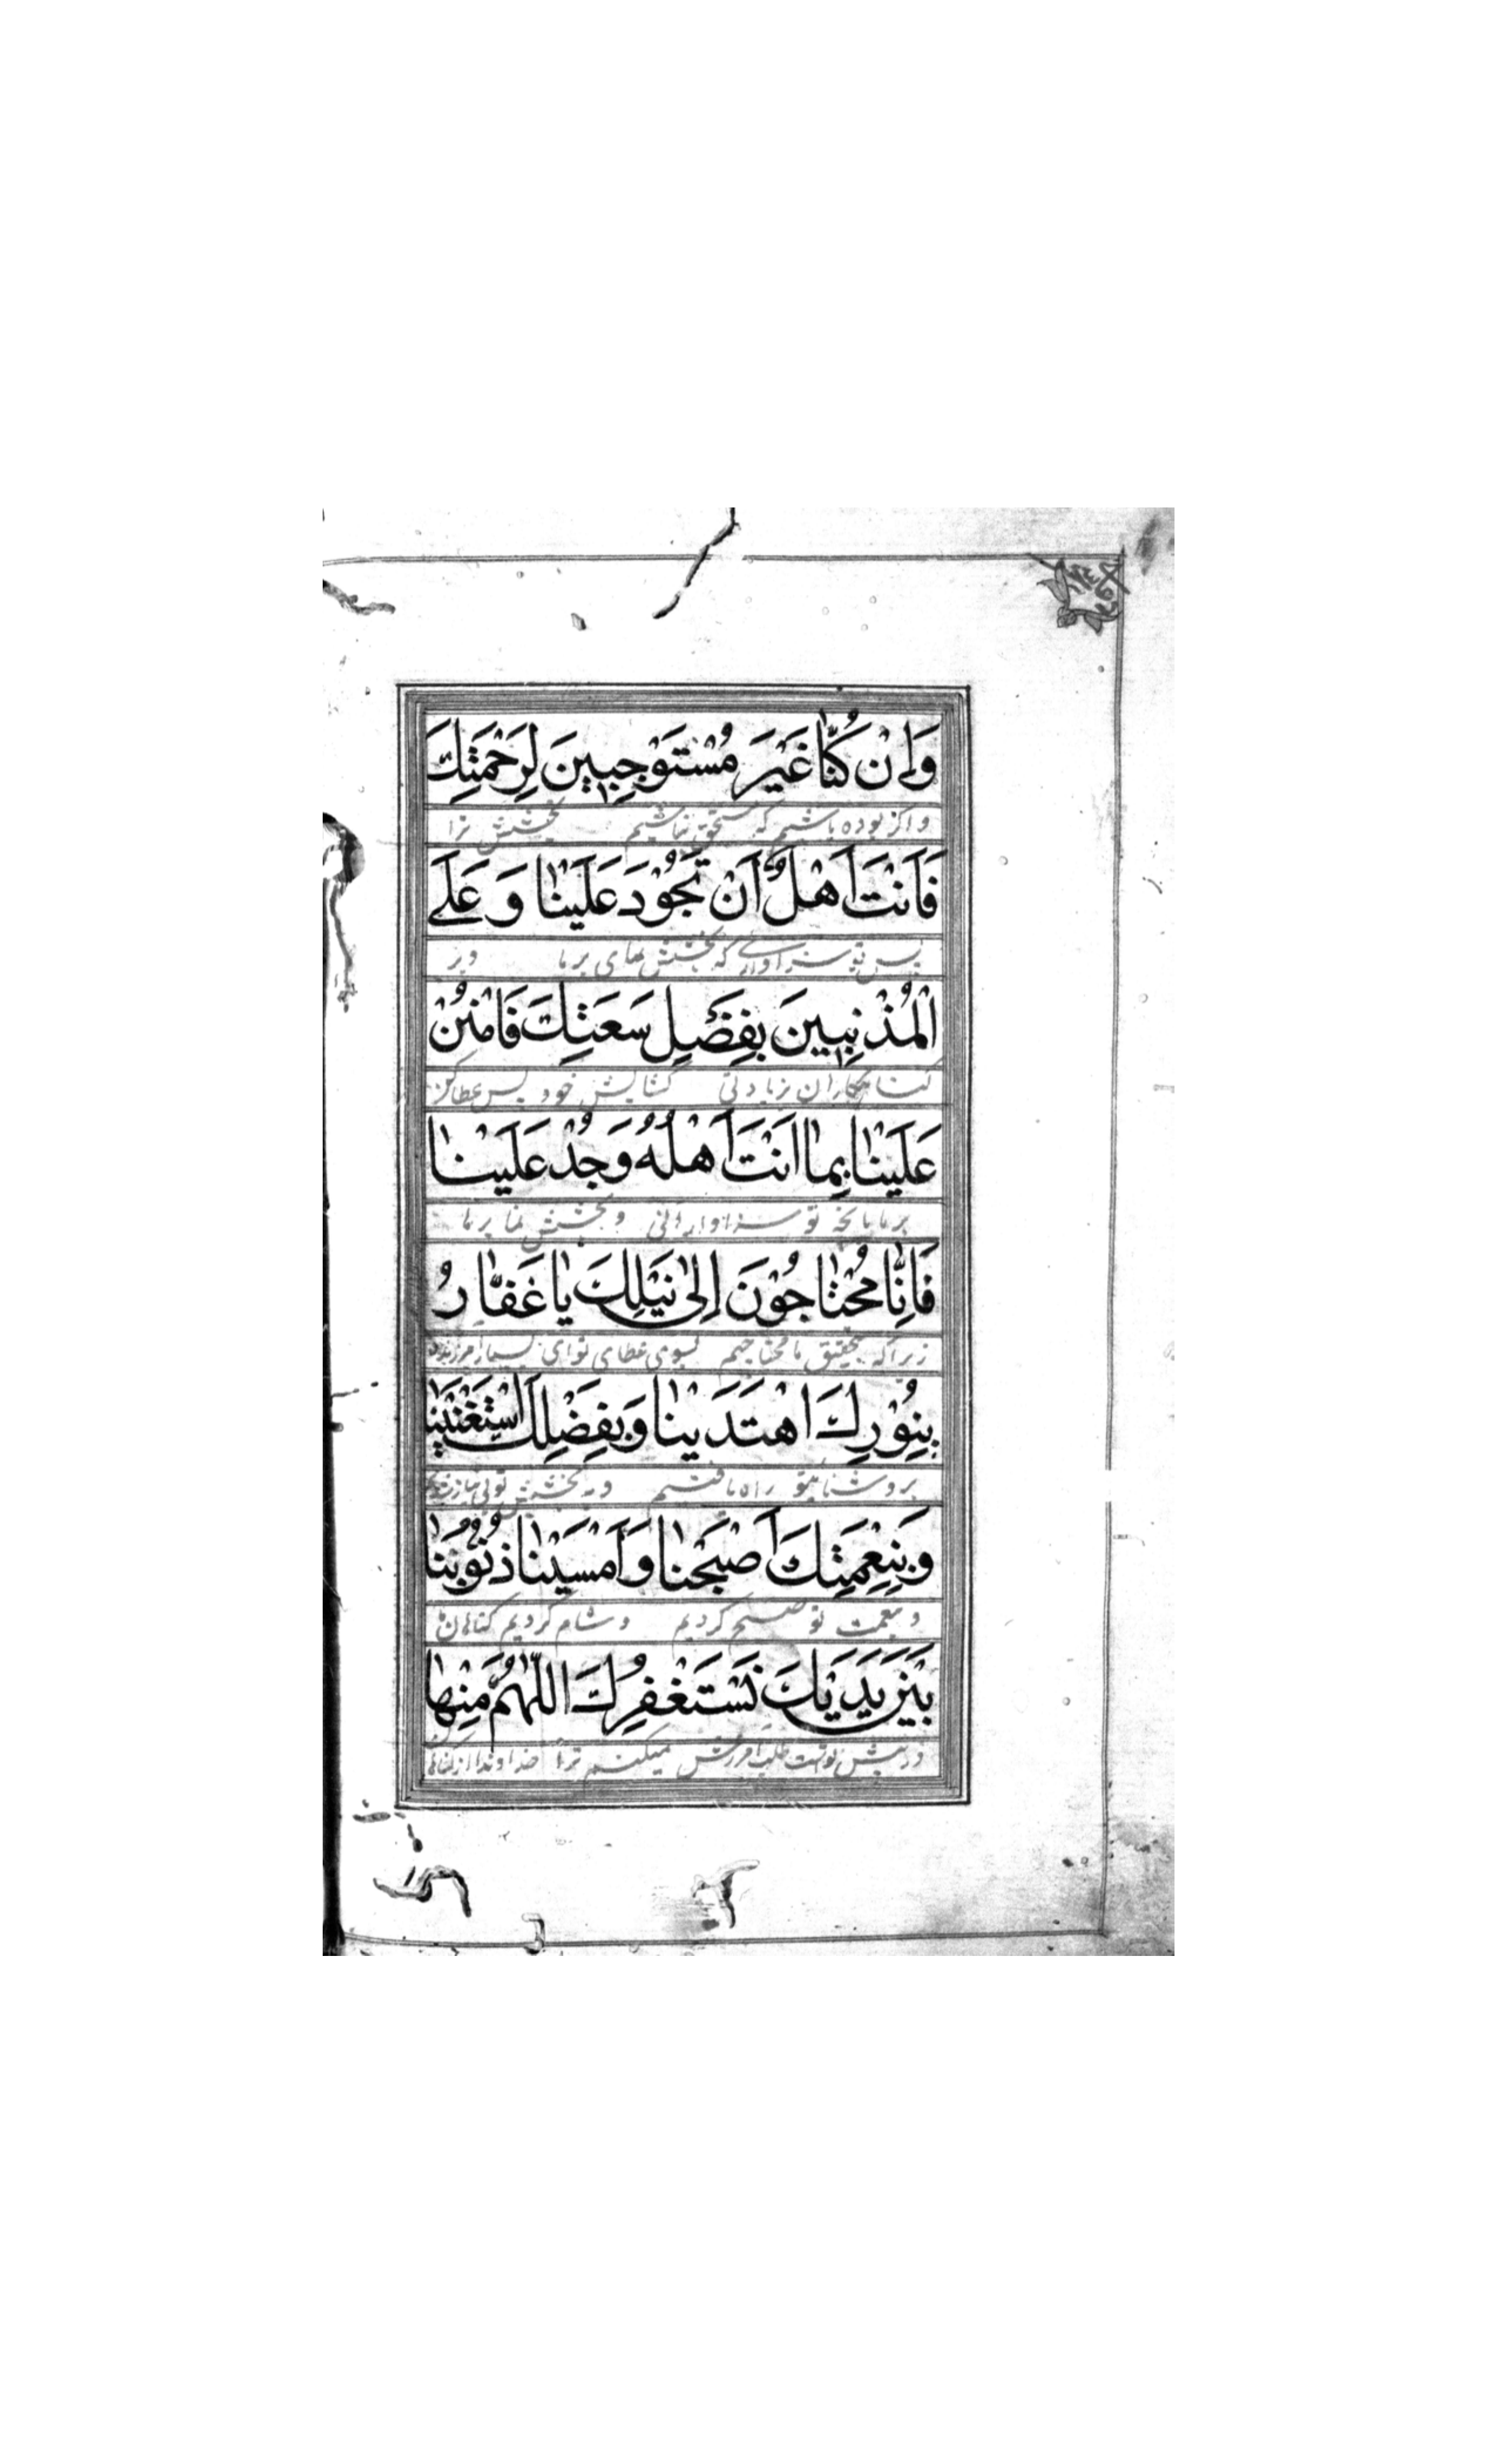 وَاِنْ كُنّٰا غَيْرَ مُسْتَوْجِبِينَ لِرَحْمَتِكَ
واگر بوده باشیم که مستحق نباشیم بخشش ترا
فَاَنْتَ اَهْلٌ اَنْ تَجُوْدَ عَلَيْنٰا وَ عَلَى
پس تو سزاواری که بخشش نمای بر ما و بر
الْمُذْنِبِينَ بِفَضْلِ سَعَتِكَ فَامْنُنْ
گناهکاران بزیادتی گشایش خود پس عطا کن
عَلَيْنٰا بِمٰا اَنْتَ اَهْلُهُ وَجُدْ عَلَيْنٰا
بر ما بآنچه تو سزاوار آنی و بخشش نما بر ما
فَاِنّٰا مُحْتٰاجُوْنَ اِلىٰ نَيْلِكَ يٰا غَفّٰارُ
زیرا که بتحقیق ما محتاجیم بسوی عطای تو ای بسیار آمرزنده
بِنُوْرِكَ اهْتَدَيْنٰا وَبِفَضْلِكَ اسْتَغْنَيْنٰا
بروشنایی تو راه یافتیم و به بخشش تو بی نیاز
وَبِنِعْمَتِكَ اَصْبَحْنٰا وَاَمْسَيْنٰا ذُنُوْبُنٰا
و بنعمت تو صبح کردیم و شام کردیم گناهان ما
بَيْنَ يَدَيْكَ نَسْتَغْفِرُكَ اللّٰهُمَّ مِنْهٰا
در پیش تو است طلب آمرزش میکنیم ترا خداوندا از گناهان